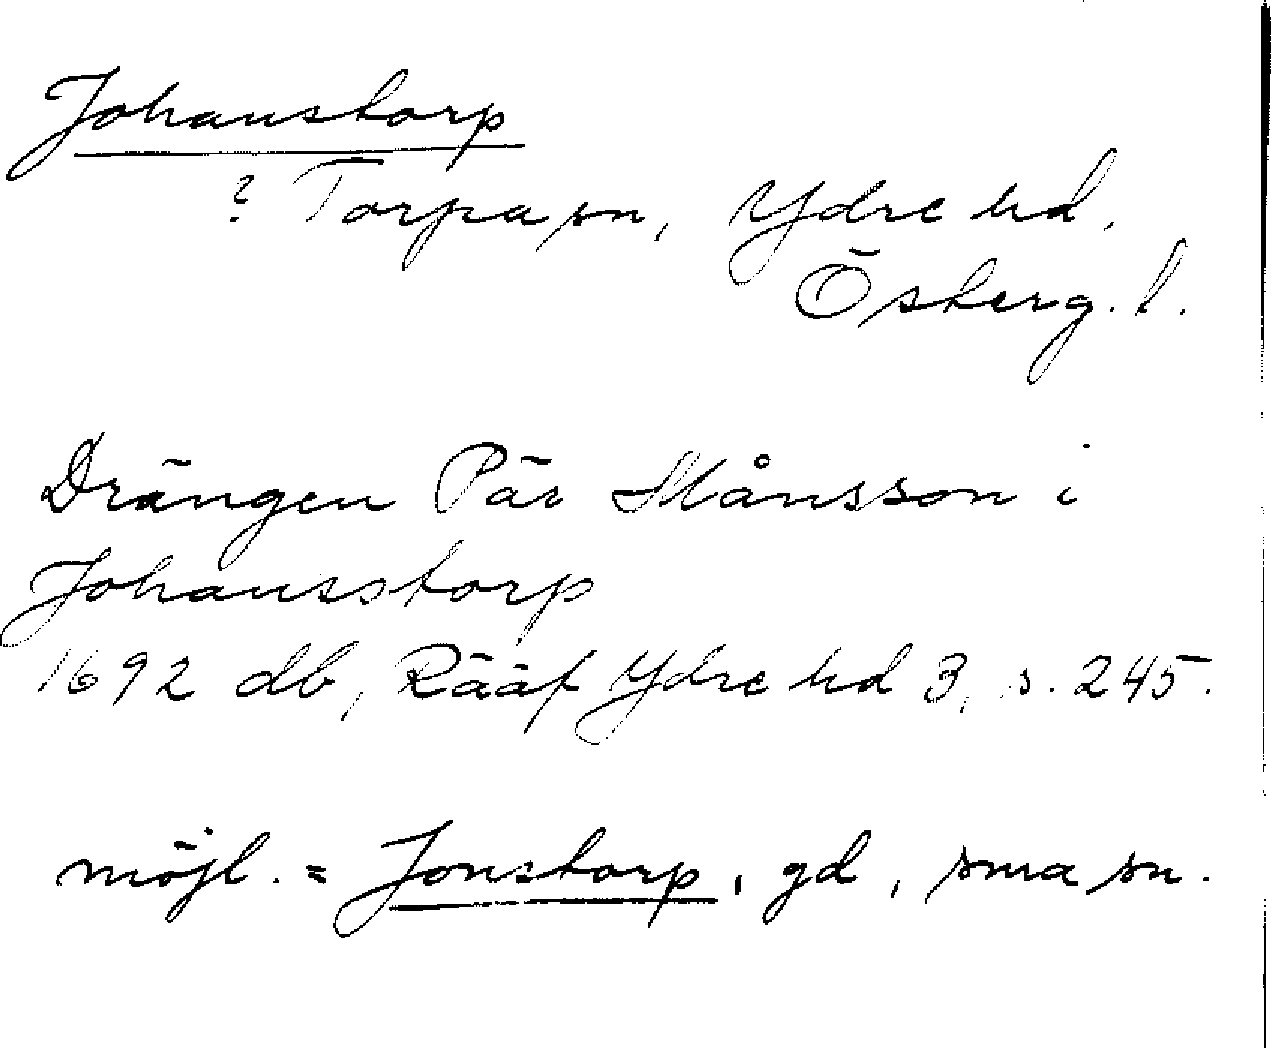 Johanstorp
? Torpa sn, Ydre hd,
Österg. l.
Drängen Pär Månsson i
Johansstorp
1692 db, Rääf Ydre hd 3, s. 245.
möjl. = Jonstorp, gd, sma sn.